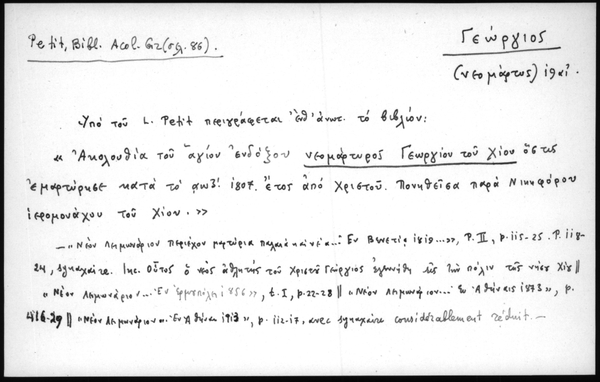 Petit, Bibl. Acol. Gr. (σελ. 86).
Γεώργιος
(νεομάρτυς)
Ὑπὸ τοῦ L. Petit περιγράφεται ἐνθ' ἄνωτ. τὸ βιβλίον:
« Ἀκολουθία τοῦ ἁγίου ἐνδόξου νεομάρτυρος Γεωργίου τοῦ Χίου ὅστις
ἐμαρτύρησε κατὰ τὸ αωζ! 1807. ἔτος ἀπὸ Χριστοῦ. Πονηθεῖσα παρὰ Νικηφόρου
ἱερομονάχου τοῦ Χίου. »
— « Νέον Λειμωνάριον περιέχον μαρτύρια παλαιὰ καὶ νέα... Ἐν Βενετίᾳ 1819... », P. II, p. 115-25. P. 118-
24, συναξάριον. Inc. Οὗτος ὁ νέος ἀθλητὴς τοῦ Χριστοῦ Γεώργιος ἐγεννήθη εἰς τὴν πόλιν τῆς νήσου Χίου ||
« Νέον Λειμωνάριον... Ἐν Ἑρμουπόλει 1856 », t. I, p. 22-28 || « Νέον Λειμωνάριον... Ἐν Ἀθήναις 1873 », p.
416-29 || « Νέον Λειμωνάριον... Ἐν Ἀθήναις 1913 », p. 112-17, avec συναξάριον considérablement réduit. —